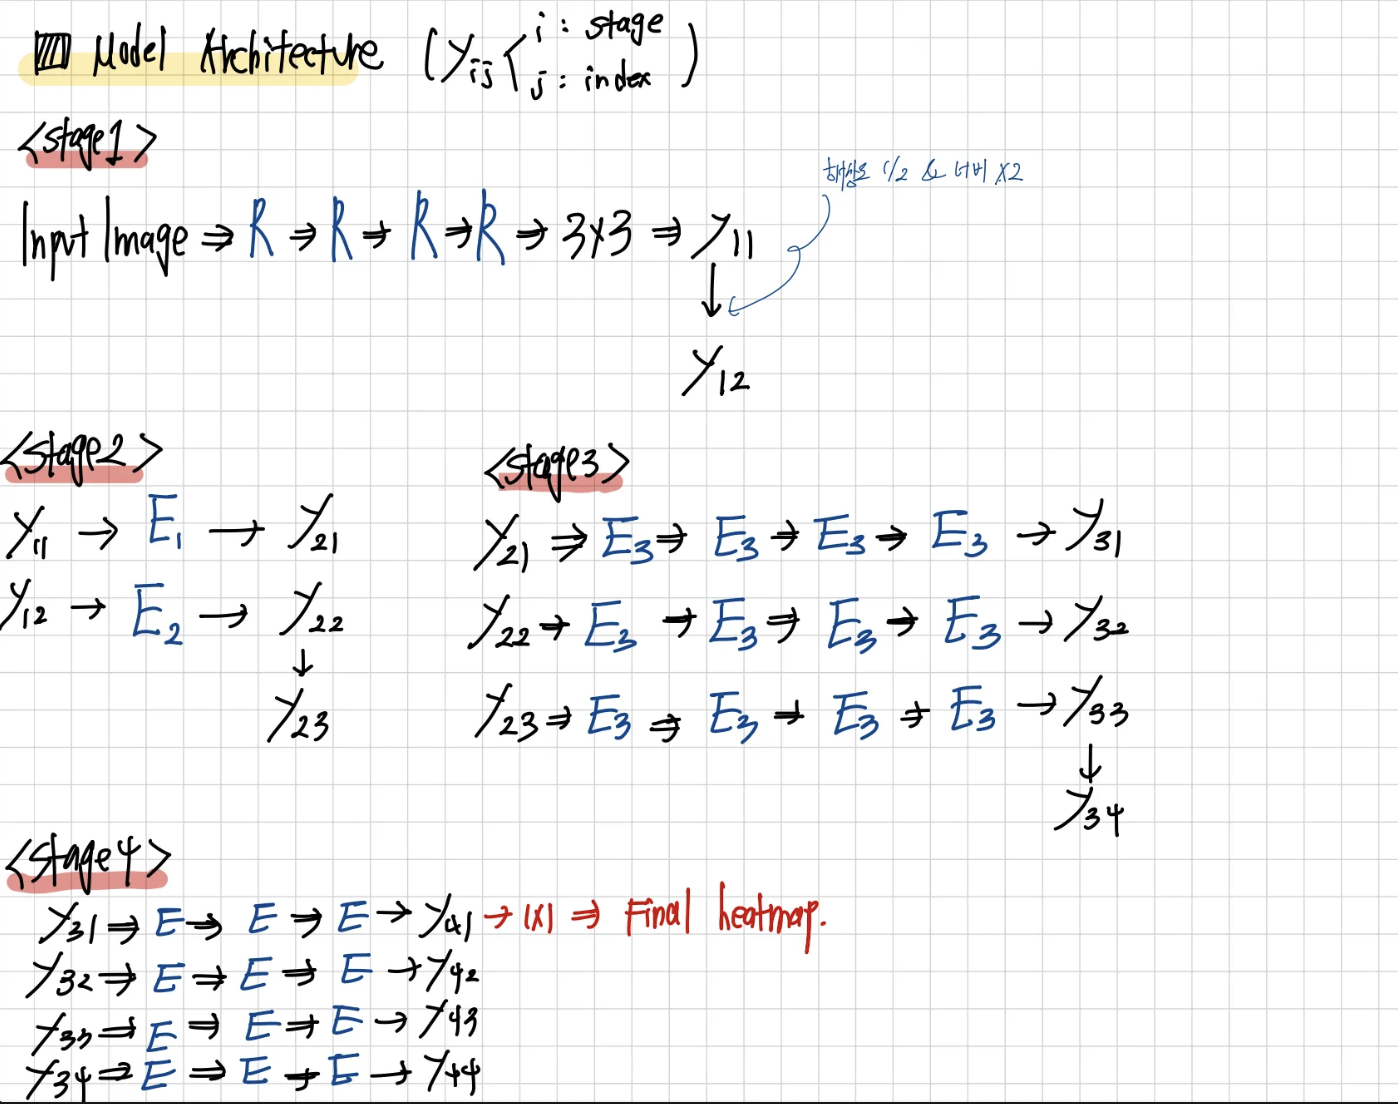 Model Architecture (y_ij < i : stage
j : index )
<stage1>
해상도 1/2 & 너비 X2
Input Image ⇒ R ⇒ R → R → R → 3x3 ⇒ y11
↓
y12
<stage2>
y11 → E1 → y21
y12 → E2 → y22
↓
y23
<stage3>
y21 ⇒ E3 → E3 → E3 → E3 → y31
y22 → E3 → E3 ⇒ E3 → E3 → y32
y23 ⇒ E3 ⇒ E3 → E3 → E3 → y33
↓
y34
<stage4>
y31 ⇒ E ⇒ E ⇒ E → y41 → 1x1 ⇒ Final heatmap.
y32 ⇒ E ⇒ E ⇒ E → y42
y33 ⇒ E ⇒ E ⇒ E → y43
y34 ⇒ E ⇒ E → E → y44